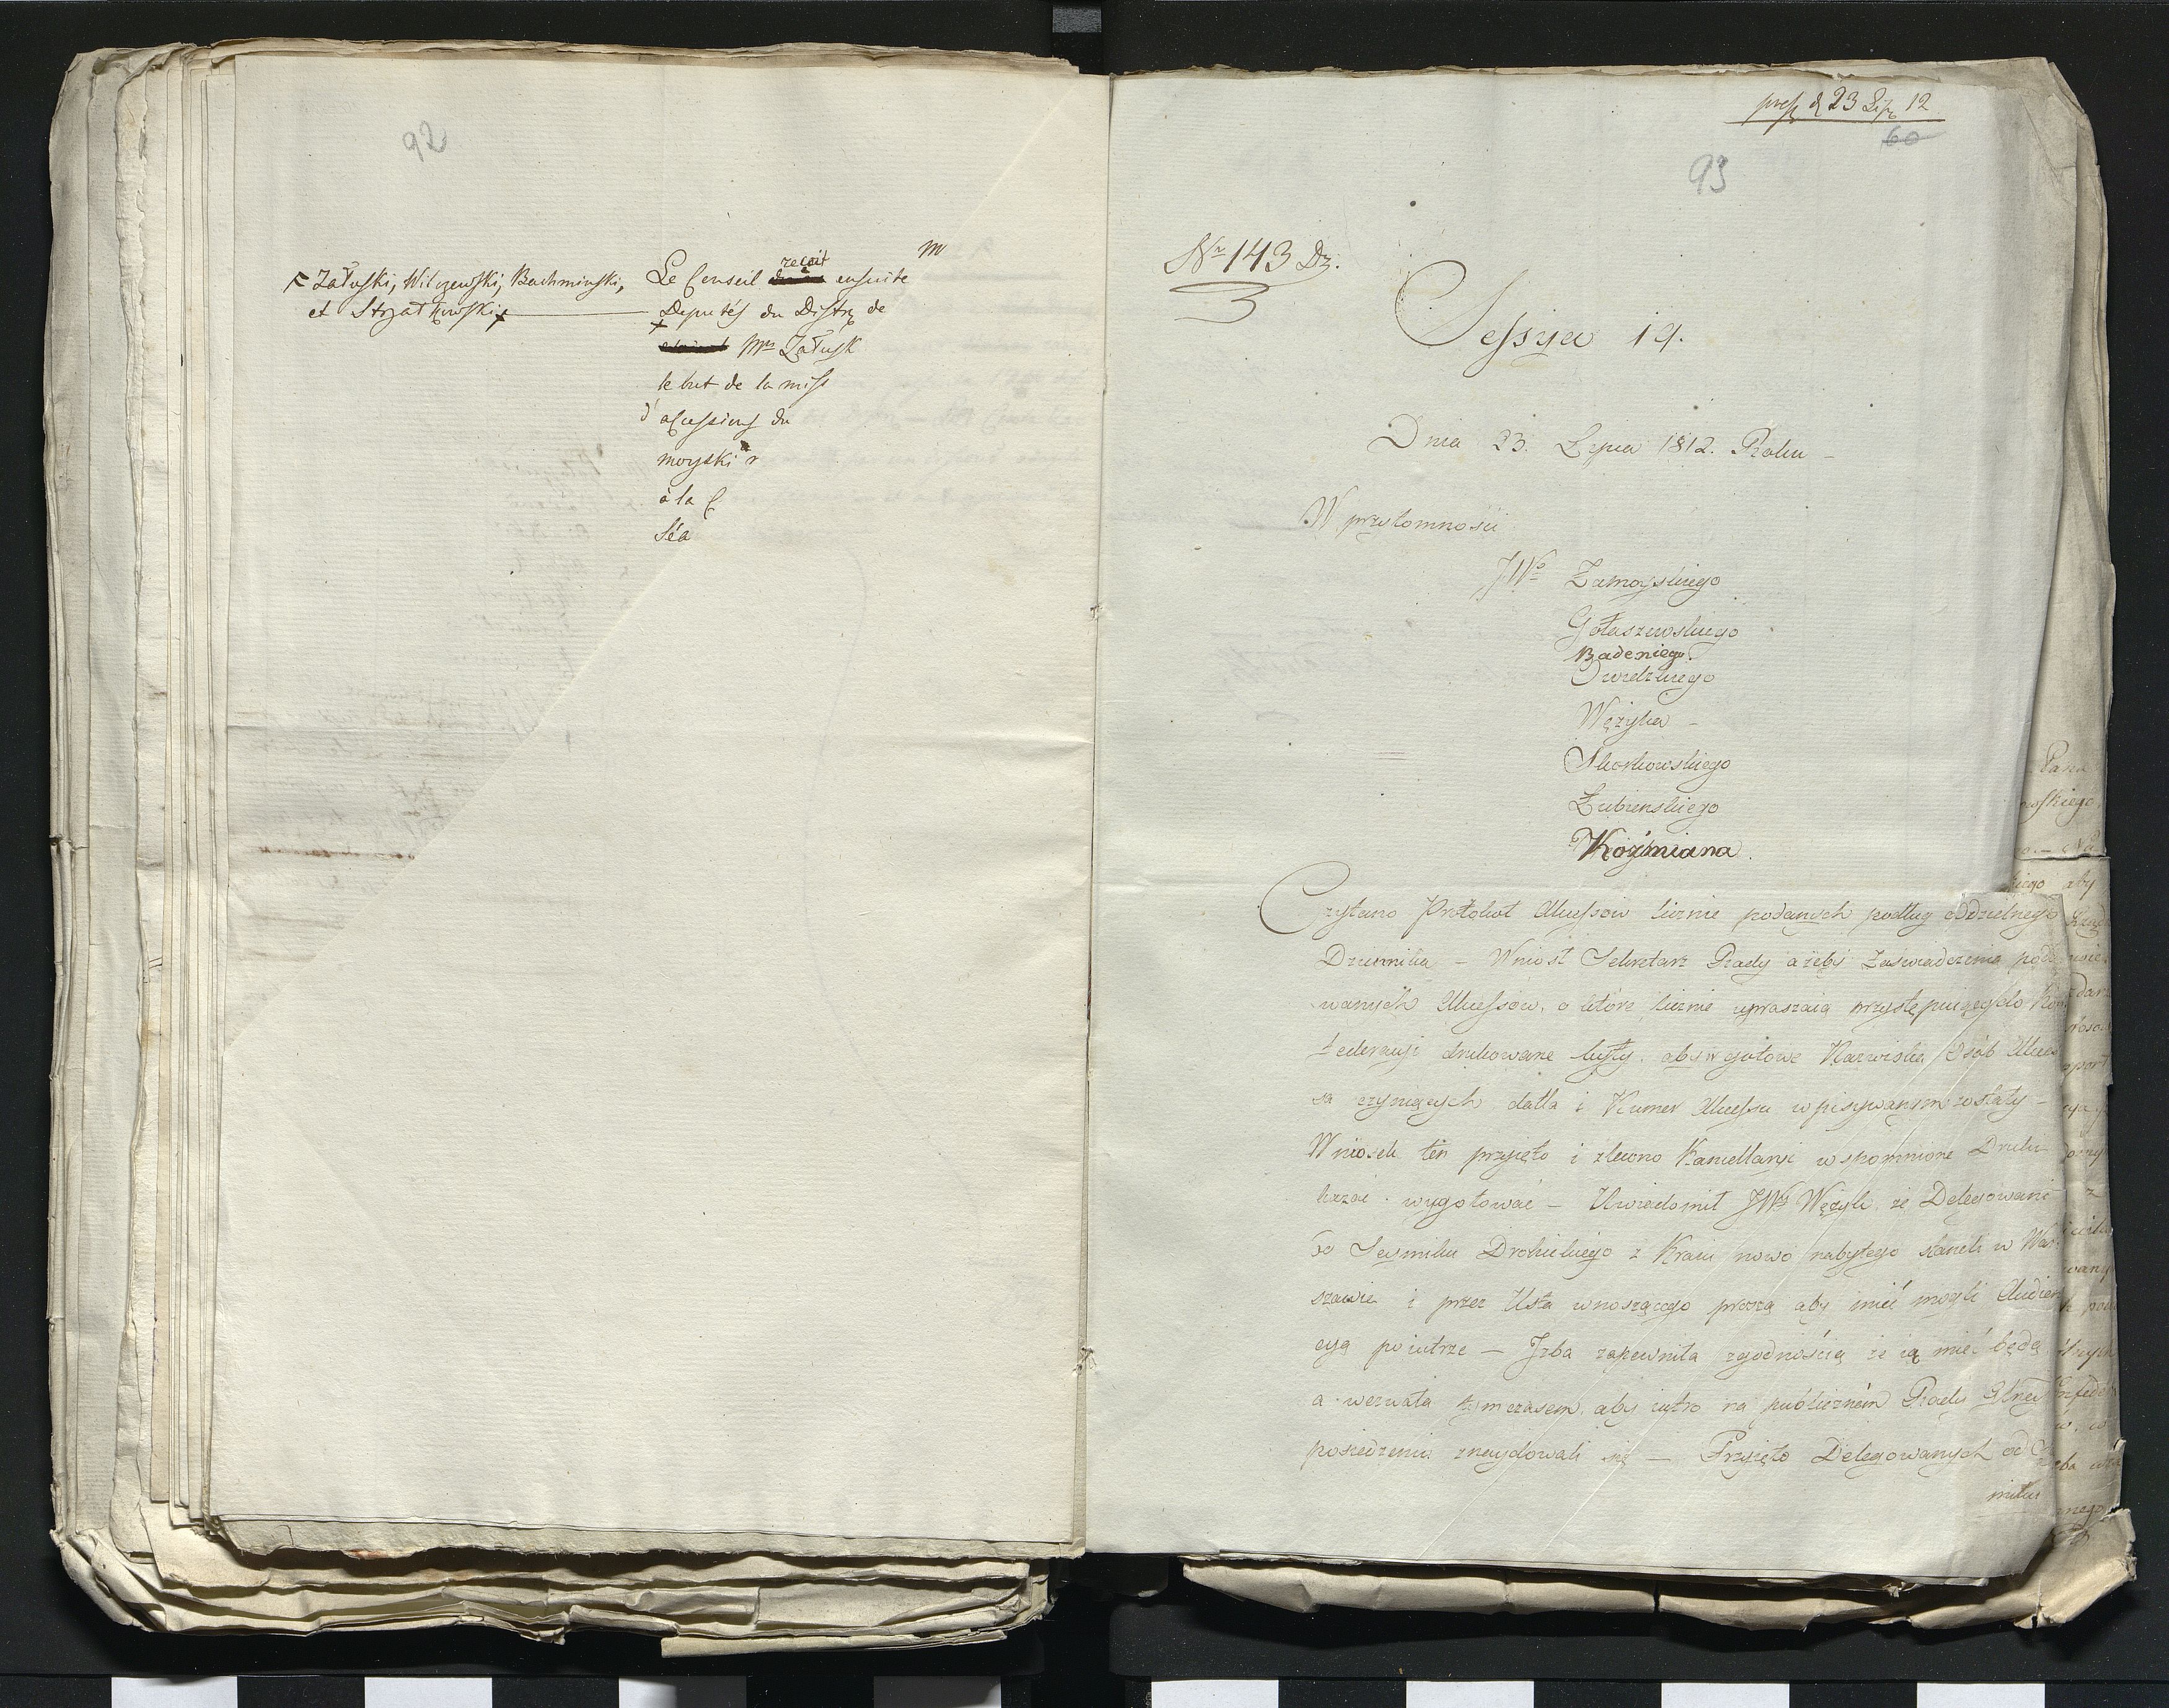 92
Załuski, Wilczewski, Bachminski,
et Strzałkowski
m
reçoit
Le Conseil ensuite
Deputés du Distr de
Mrs Załusk
le but de la miss
d'
acessions du
moyski
à la C
Séa
pres d 23 Lip 12
60
93
Nr 143 Dz.
Sessya 19.
Dnia 23. Lipca 1812. Roku –
W przytomności
JWo Zamoyskiego
Gołaszewskiego
Badeniego.
Swidzkiego
Wężyka –
Skorkowskiego
Łubienskiego
Koźmiana.
Czytano Protokoł Akcessow licznie podanych podług oddzielnego
Dziennika – Wniosł Sekretarz Rady ażeby Zaswiadczenia poda
wanych Akcessow, o które licznie upraszaią przystępuiący do Kon
federacyi drukowane były, aby w gotowe Nazwiska Osób Akces
sa czyniących datta i Numer Akcessu wpisywanym zostały –
Wniosek ten przyięto i zlecono Kancellaryi wspomnione Druki
kazać wygotować – Uwiadomił JW Wężyk że Delegowani
Seymiku Drohickiego z Kraiu nowo nabytego staneli w War
szawie i przez Usta wnoszącego proszą aby mieć mogli Audien
cyą po iutrze – Izba zapewniła zgodnością że ią mieć będą
a wezwała tymczasem, aby iutro na publicznem Rady Głney
posiedzeniu znaydowali się – Przyięto Delegowanych od
miku